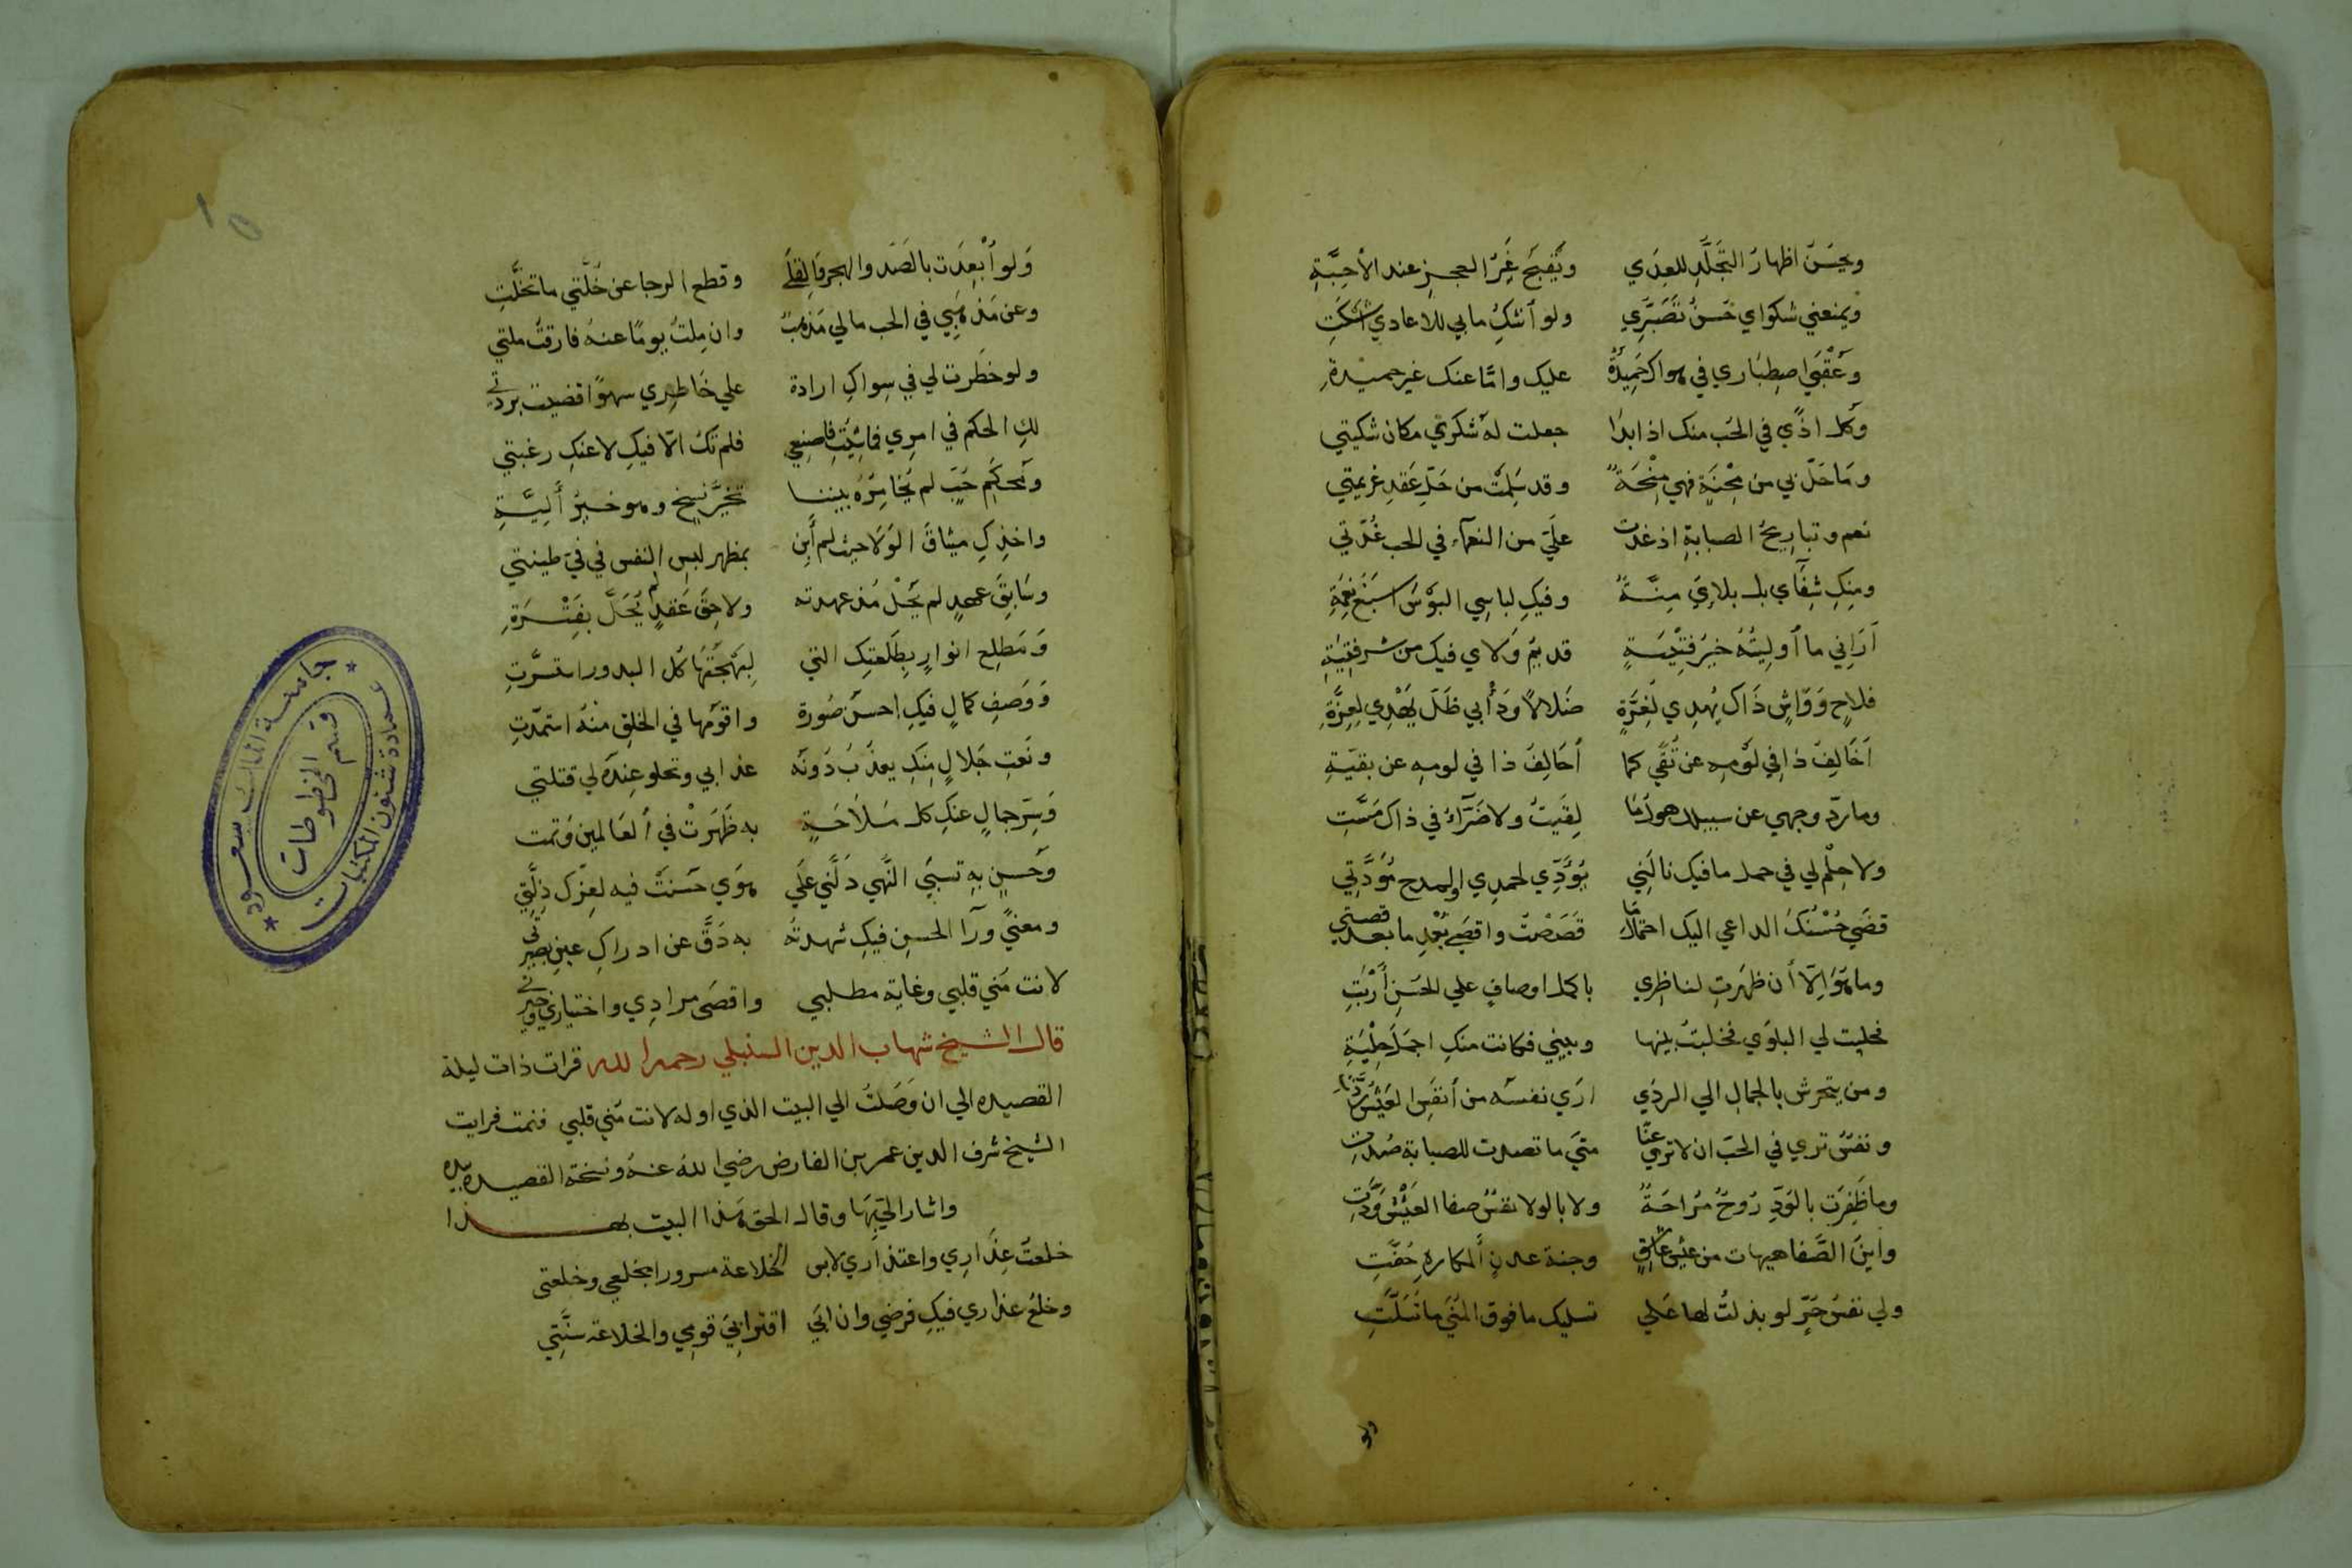 ويحسن اظهار التجلد للعدي ويقبح غير العجز عند الأحبة
ويمنعني شكواي حسن تصبري ولو أشك ما بي للاعادي اشكت
وعقبي اصطباري في هواك حميدة عليك واما عنك غير حميدة
وكل اذي في الحب منك اذا بدا جعلت له شكري مكان شكيتي
وما حل بي من محنة فهي منحة وقد سلمت من حل عقد عزيمتي
نعم وتباريح الصبابة اذ غدت علي من النعماء في الحب عدتي
ومنك شقاي بل بلاءي منة وفيك لباسي البؤس اسبغ نعمة
أراني ما أوليته خير قنية قديم ولاي فيك من شر فتية
فلاح وواش ذاك يهدي لغرة ضلالا وذا بي ظل يهدي لعزة
أخالف ذا في لومه عن تقي كما أحالف ذا في لومه عن بقية
وما رد وجهي عن سبيلك هول ما لقيت ولا ضراء في ذاك مست
ولا حلم لي في حمل ما فيك نالني يؤدي لحمدي او لمدح مودتي
قضي حسنك الداعي اليك احتمال ما قصصت واقصي بعد ما بعد قصتي
وما هو الا أن ظهرت لناظري باكمل اوصاف علي الحسن أربت
فحليت لي البلوي فخليت بينها وبيني فكانت منك اجمل حلية
ومن يتحرش بالجمال الي الردي اري نفسه من أنفس العيش ردت
ونفس تري في الحب ان لا تري عنا متي ما تصدت للصبابة صدت
وما ظفرت بالود روح مراحة ولا بالولا نفس صفا العيش ودت
واين الصفا هيهات من عيش عاشق وجنة عدن بالمكاره حفت
ولي نفس حر لو بذلت لها علي تسليك ما فوق المني ما تسلت
ولو
ولو أبعدت بالصد والهجر والقلي وقطع الرجا عن خلتي ما تخلت
وعن مذهبي في الحب ما لي مذهب وان ملت يوما عنه فارقت ملتي
ولو خطرت لي في سواك ارادة علي خاطري سهوا قضيت بردتي
لك الحكم في امري فما شئت فاصنعي فلم تك الا فيك لا عنك رغبتي
ومحكم حب لم يخامره بيننا تخير نسخ وهو خير ألية
واخذك ميثاق الولا حيث لم أبن بمظهر لبس النفس في في طينتي
وسابق عهد لم يحل مذ عهدته ولاحق عقد لم يحل بفترة
ومطلع انوار بطلعتك التي لبهجتها كل البدور استسرت
ووصف كمال فيك احسن صورة واقومها في الخلق منه استمدت
ونعت جلال منك يعذب دونه عذابي وتحلو عنده لي قتلتي
وسر جمال عنك كل ملاحة به ظهرت في العالمين وتمت
وحسن به تسبي النهي دلني علي هوي حسنت فيه لعزك ذلتي
ومعني ورا الحسن فيك شهدته به دق عن ادراك عين بصيرتي
لانت مني قلبي وغاية مطلبي واقصي مرادي واختياري وخيرتي
قال الشيخ شهاب الدين السنبلي رحمه الله قرات ذات ليلة
القصيده الي ان وصلت الي البيت الذي اوله لانت مني قلبي فنمت فرايت
الشيخ شرف الدين عمر بن الفارض رضي الله عنه ونسخة القصيدة بيده
واشار الي بها وقال الحق هذا البيت بهذا
خلعت عذاري واعتذاري لابس الخلاعة مسرورا بخلعي وخلعتي
وخلع عذاري فيك فرضي وان ابي اقترابي قومي والخلاعة سنتي
جامعة الملك سعود
عمادة شئون المكتبات
قسم المخطوطات